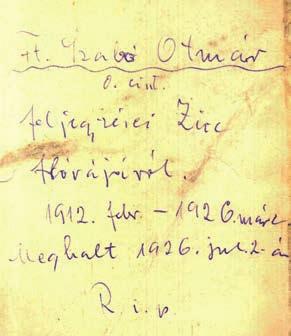 Ft. Szabó Otmár
O. cist.
feljegyzései Zirc
flórájáról.
1912. febr. – 1926. márc.
Meghalt 1926. jul. 2-án
R. i. p.